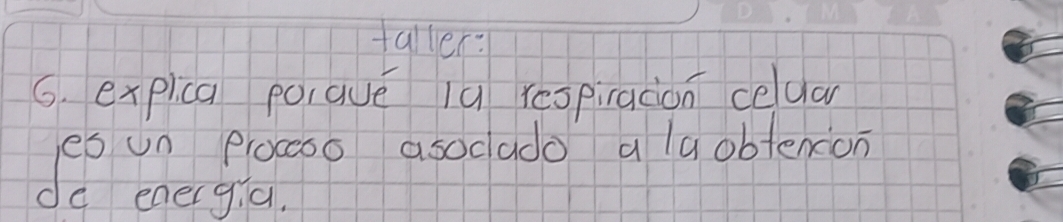 D M A
taller:
6. explica porqué la respiración celuar
es un proceso asociado a la obtención
de energía.